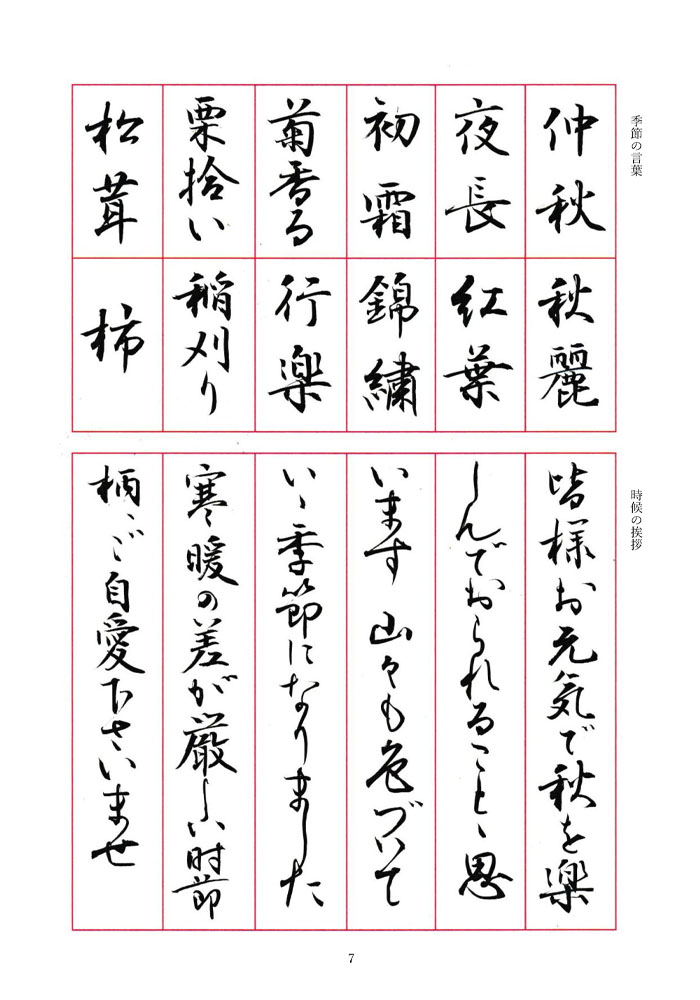 季節の言葉
仲秋
夜長
初霜
菊香る
栗拾い
松茸
秋麗
紅葉
錦繍
行楽
稲刈り
柿
時候の挨拶
皆様お元気で秋を楽
しんでおられることゝ思
います 山々も色づいて
いゝ季節になりました
寒暖の差が厳しい時節
柄、ご自愛下さいませ
7